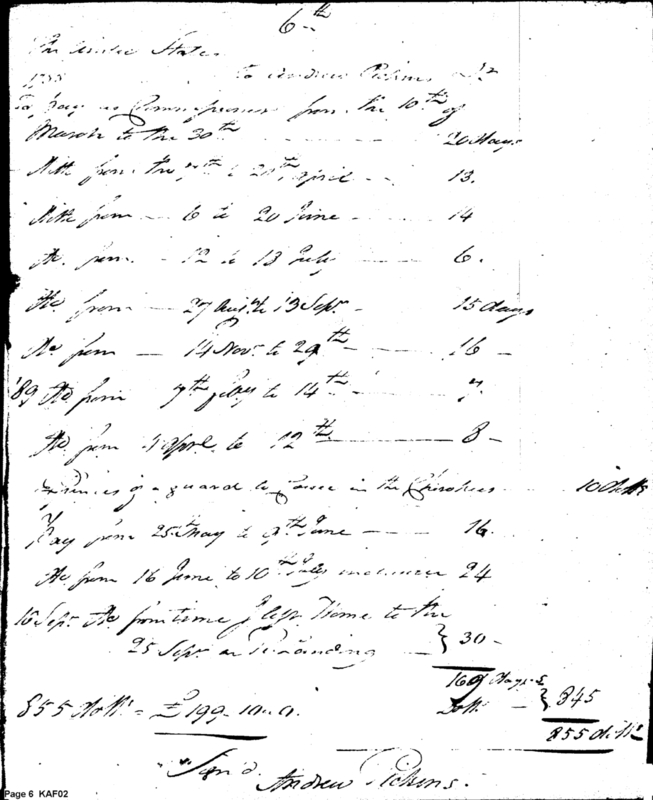 6th
The United States
1788 to Andrew Pickens Dr
To pay as Commissioner from the 10th of
March to the 30th 20 days
Ditto from the 7th to 20th april 13.
Ditto from 6 to 20 June 14
Do. from 12 to 18 July 6.
Do from 29 Augt. to 13 Sepr. 15 days
Do from 14 Novr. to 29th 16
'89 Do from 7th to 14th 7.
Do from 4 april to 12th 8
of a guard to in the Cherokees 10 dolls
Pay from 25th May to 9th June 16.
Do from 16 June to 10th July inclusive 24
16 Sepr. Do from time I left Home to the
25 Sepr. 30
169 days
Dolls } 845
855 Dolls = £199 10.. 0. 855 dolls
Sign'd.
Andrew Pickens.
Page 6 KAF02